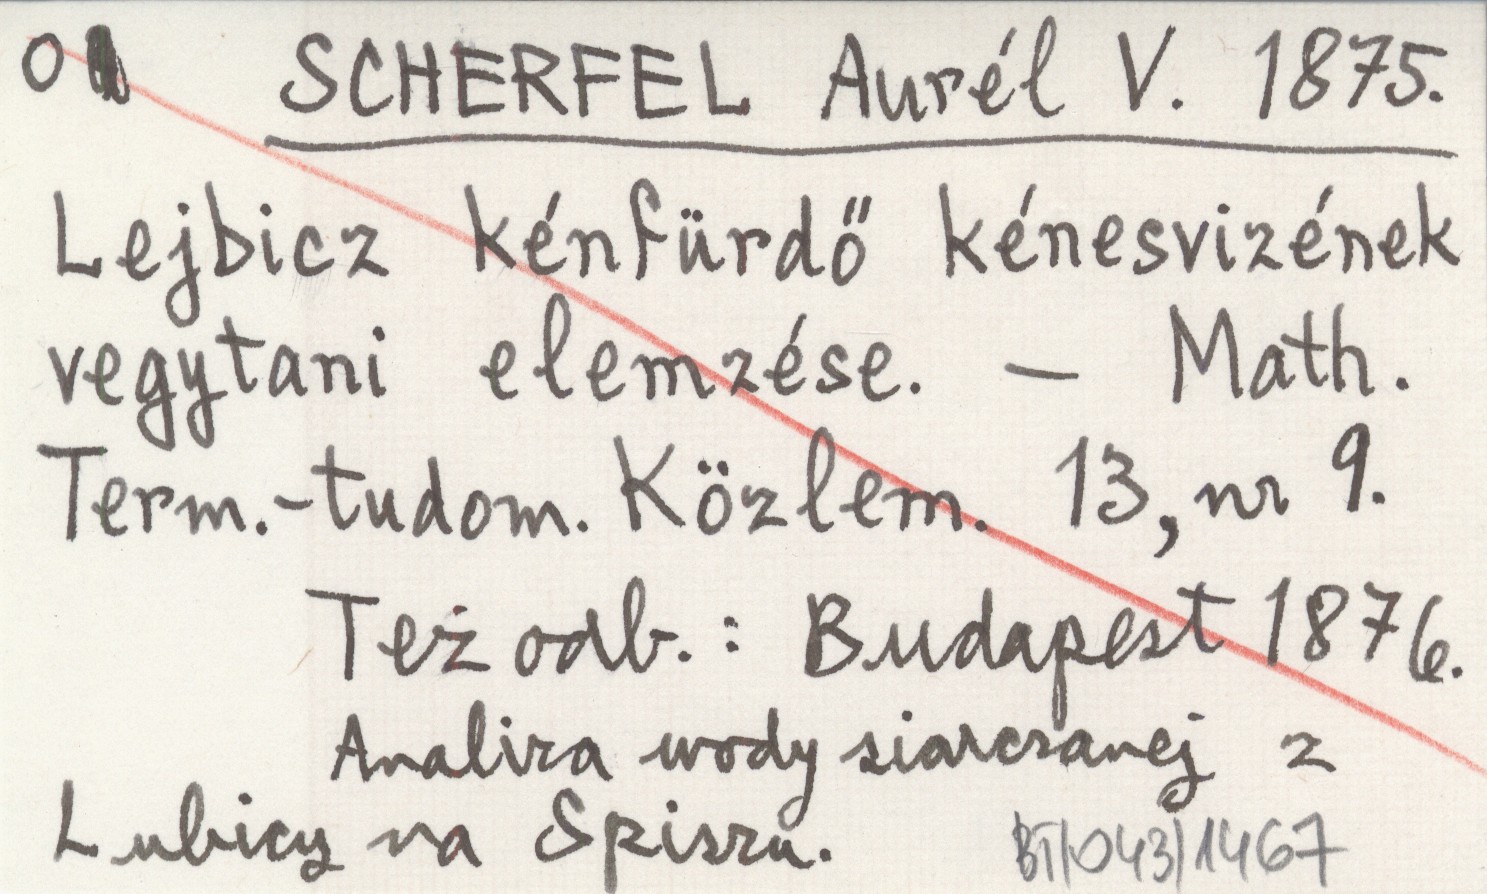 O SCHERFEL Aurél V. 1875.
Lejbicz kénfürdő kénesvizének
vegytani elemzése. — Math.
Term.-tudom. Közlem. 13, nr 9.
Też odb.: Budapest 1876.
Analiza wody siarczanej z
Lubicy na Spiszu. BT/043/1467